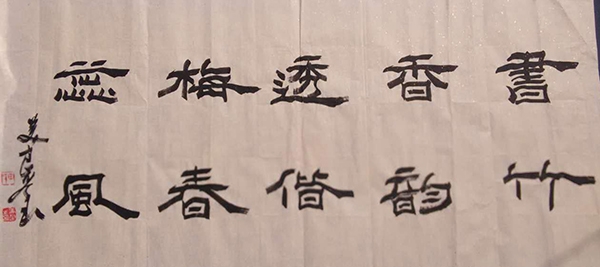 書香透梅蕊
竹韵偕春風